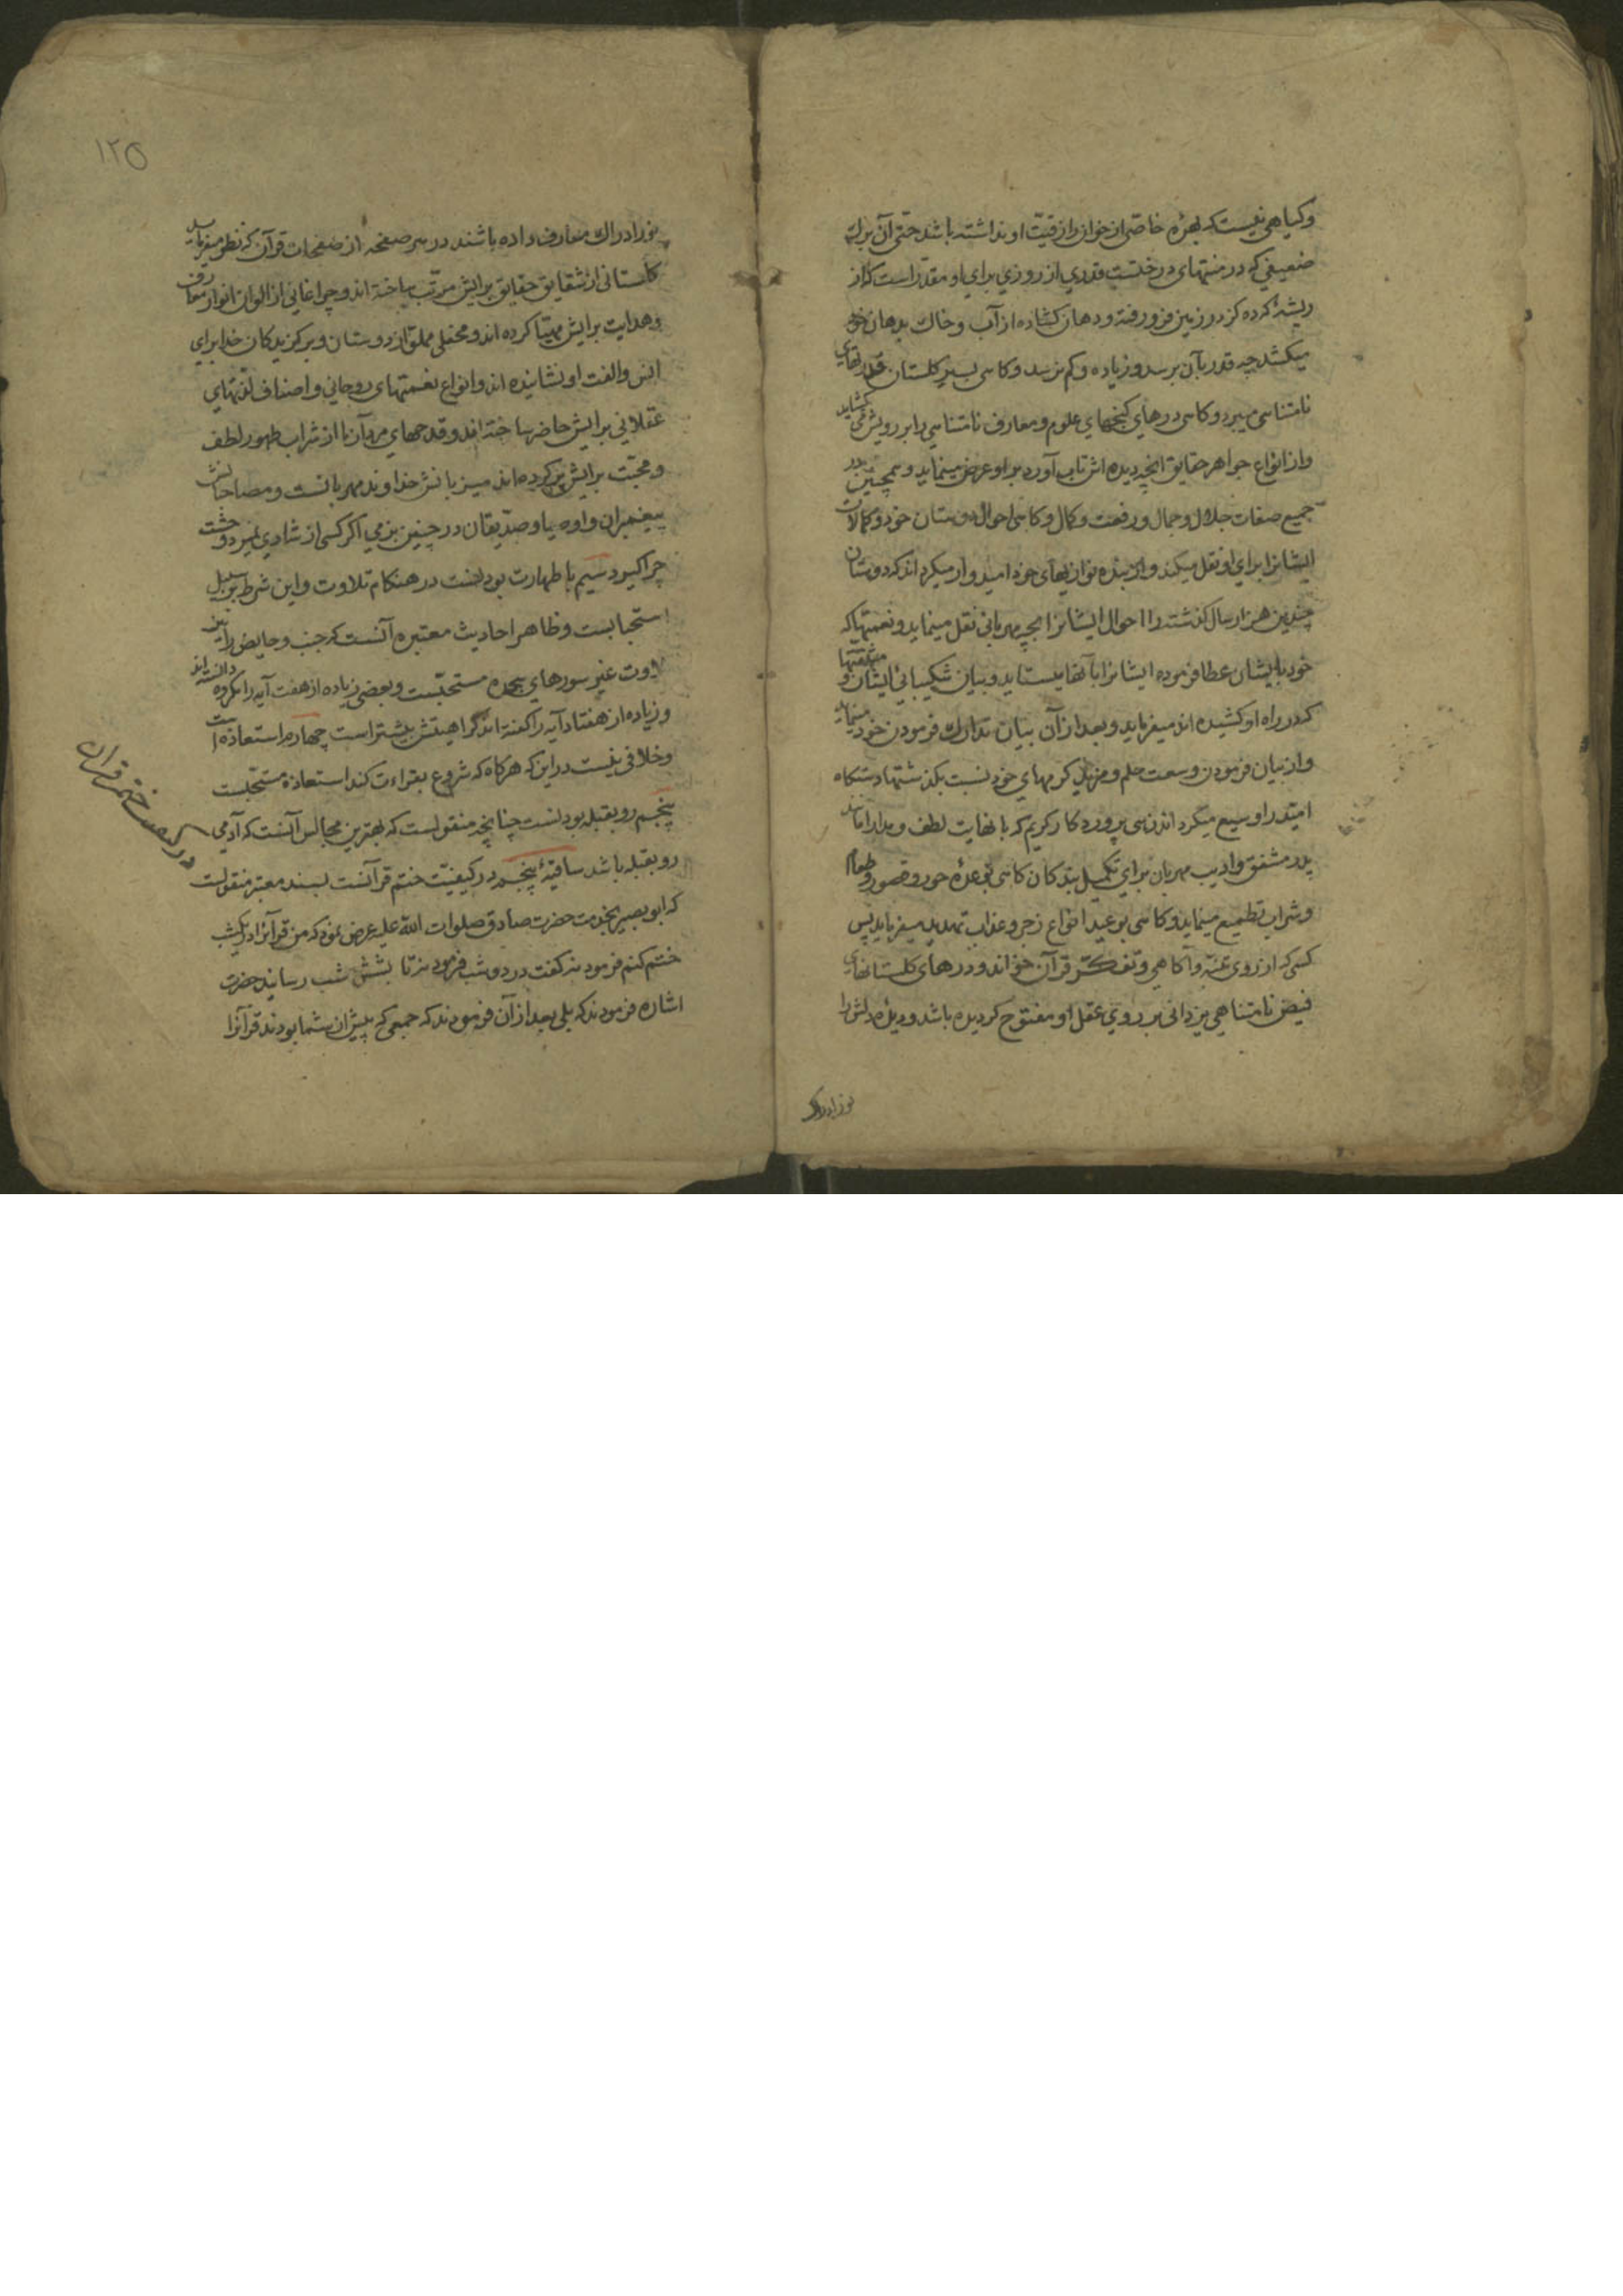 وکیاهی نیست که بهرهٔ خاصّی از خوان رازقیّت او نداشته باشد حتی آن برک
ضعیفی که در منتهای درختست قدری از روزی برای او مقدّر است که از
ریشهٔ که ده کز در زمین فرو رفته و دهان کشاده از آب و خاک بدهان خود
میکشد چه قدر بآن برسد و زیاده و کم نرسد و کاهی بسیر کلستان قدرتهای
نامتناهی میبرد و کاهی درهای کنجهای علوم و معارف نامتناهی را بر رویش می کشاید
و از انواع جواهر حقایق انچه دیده اش تاب آورد بر او عرض مینماید و همچنین در
جمیع صفات جلال و جمال و رفعت و کمال و کاهی احوال دوستان خود و کمالات
ایشانرا برای او نقل میکند و از بنده نوازیهای خود امیدوار میکرداند که دوستان
چندین هزار سال کذشته را احوال ایشانرا بچه مهربانی نقل مینماید و نعمتها که
خود بایشان عطا فرموده ایشانرا بآنها میستاید و بیان شکیبائی ایشان و مشقتها
که در راه او کشیده اند میفرماید و بعد از آن بیان تدارک فرمودن خود مینماید
و از بیان فرمودن وسعت حلم و مزید کرمهای خود نسبت بکذشتها دستکاه
امید را وسیع میکرداند زهی پروردکار کریم که با نهایت لطف و مدارا مانند
پدر مشفق و ادیب مهربان برای تکمیل بندکان کاهی بوعدهٔ حور و قصور و طعام
و شراب تطمیع مینماید و کاهی بوعید انواع زجر و عذاب تهدید میفرماید پس
کسی که از روی تنبّه و آکاهی و تفکّر قرآن خواند و درهای کلستانهای
فیض نامتناهی یزدانی بر روی عقل او مفتوح کردیده باشد و دیدهٔ دلش را
نور ادراک
۱۲۵
نور ادراک معارف داده باشند در هر صفحه از صفحات قرآن که نظر میفرماید
کلستانی از شقایق حقایق برایش مرتّب ساخته اند و چراغانی از الوان انوار معارف
و هدایت برایش مهیّا کرده اند و محفلی مملوّ از دوستان و برکزیدکان خدا برای
انس و الفت او نشانیده اند و انواع نعمتهای روحانی و اصناف لذّتهای
عقلانی برایش حاضر ساخته اند و قدحهای مردآزما از شراب طهور لطف
و محبّت برایش پر کرده اند میزبانش خداوند مهربانست و مصاحبانش
پیغمبران و اوصیا و صدیقان در چنین بزمی اکر کسی از شادی نمیرد وحشت
چرا کیرد سیم با طهارت بودنست در هنکام تلاوت و این شرط بر سبیل
استحبابست و ظاهر احادیث معتبره آنست که جنب و حایض را نیز
تلاوت غیر سورهای سجده مستحبّست و بعضی زیاده از هفت آیه را مکروه دانسته اند
و زیاده از هفتاد آیه را کفته اند کراهیتش بیشتر است چهارم استعاذه است
و خلافی نیست در این که هر کاه که شروع بقراءت کند استعاذه مستحبّست
پنجم رو بقبله بودنست چنانچه منقولست که بهترین مجالس آنست که آدمی
رو بقبله باشد ساقیهٔ پنجم در کیفیّت ختم قرآنست بسند معتبر منقولست
در کیفیت ختم قران
که ابو بصیر بخدمت حضرت صادق صلوات الله علیه عرض نمود که من قرآنرا در یکشب
ختم کنم فرمود نه کفت در دو شب فرمود نه تا بشش شب رسانید حضرت
اشاره فرمودند که بلی بعد از آن فرمودند که جمعی که پیش از شما بودند قرآنرا